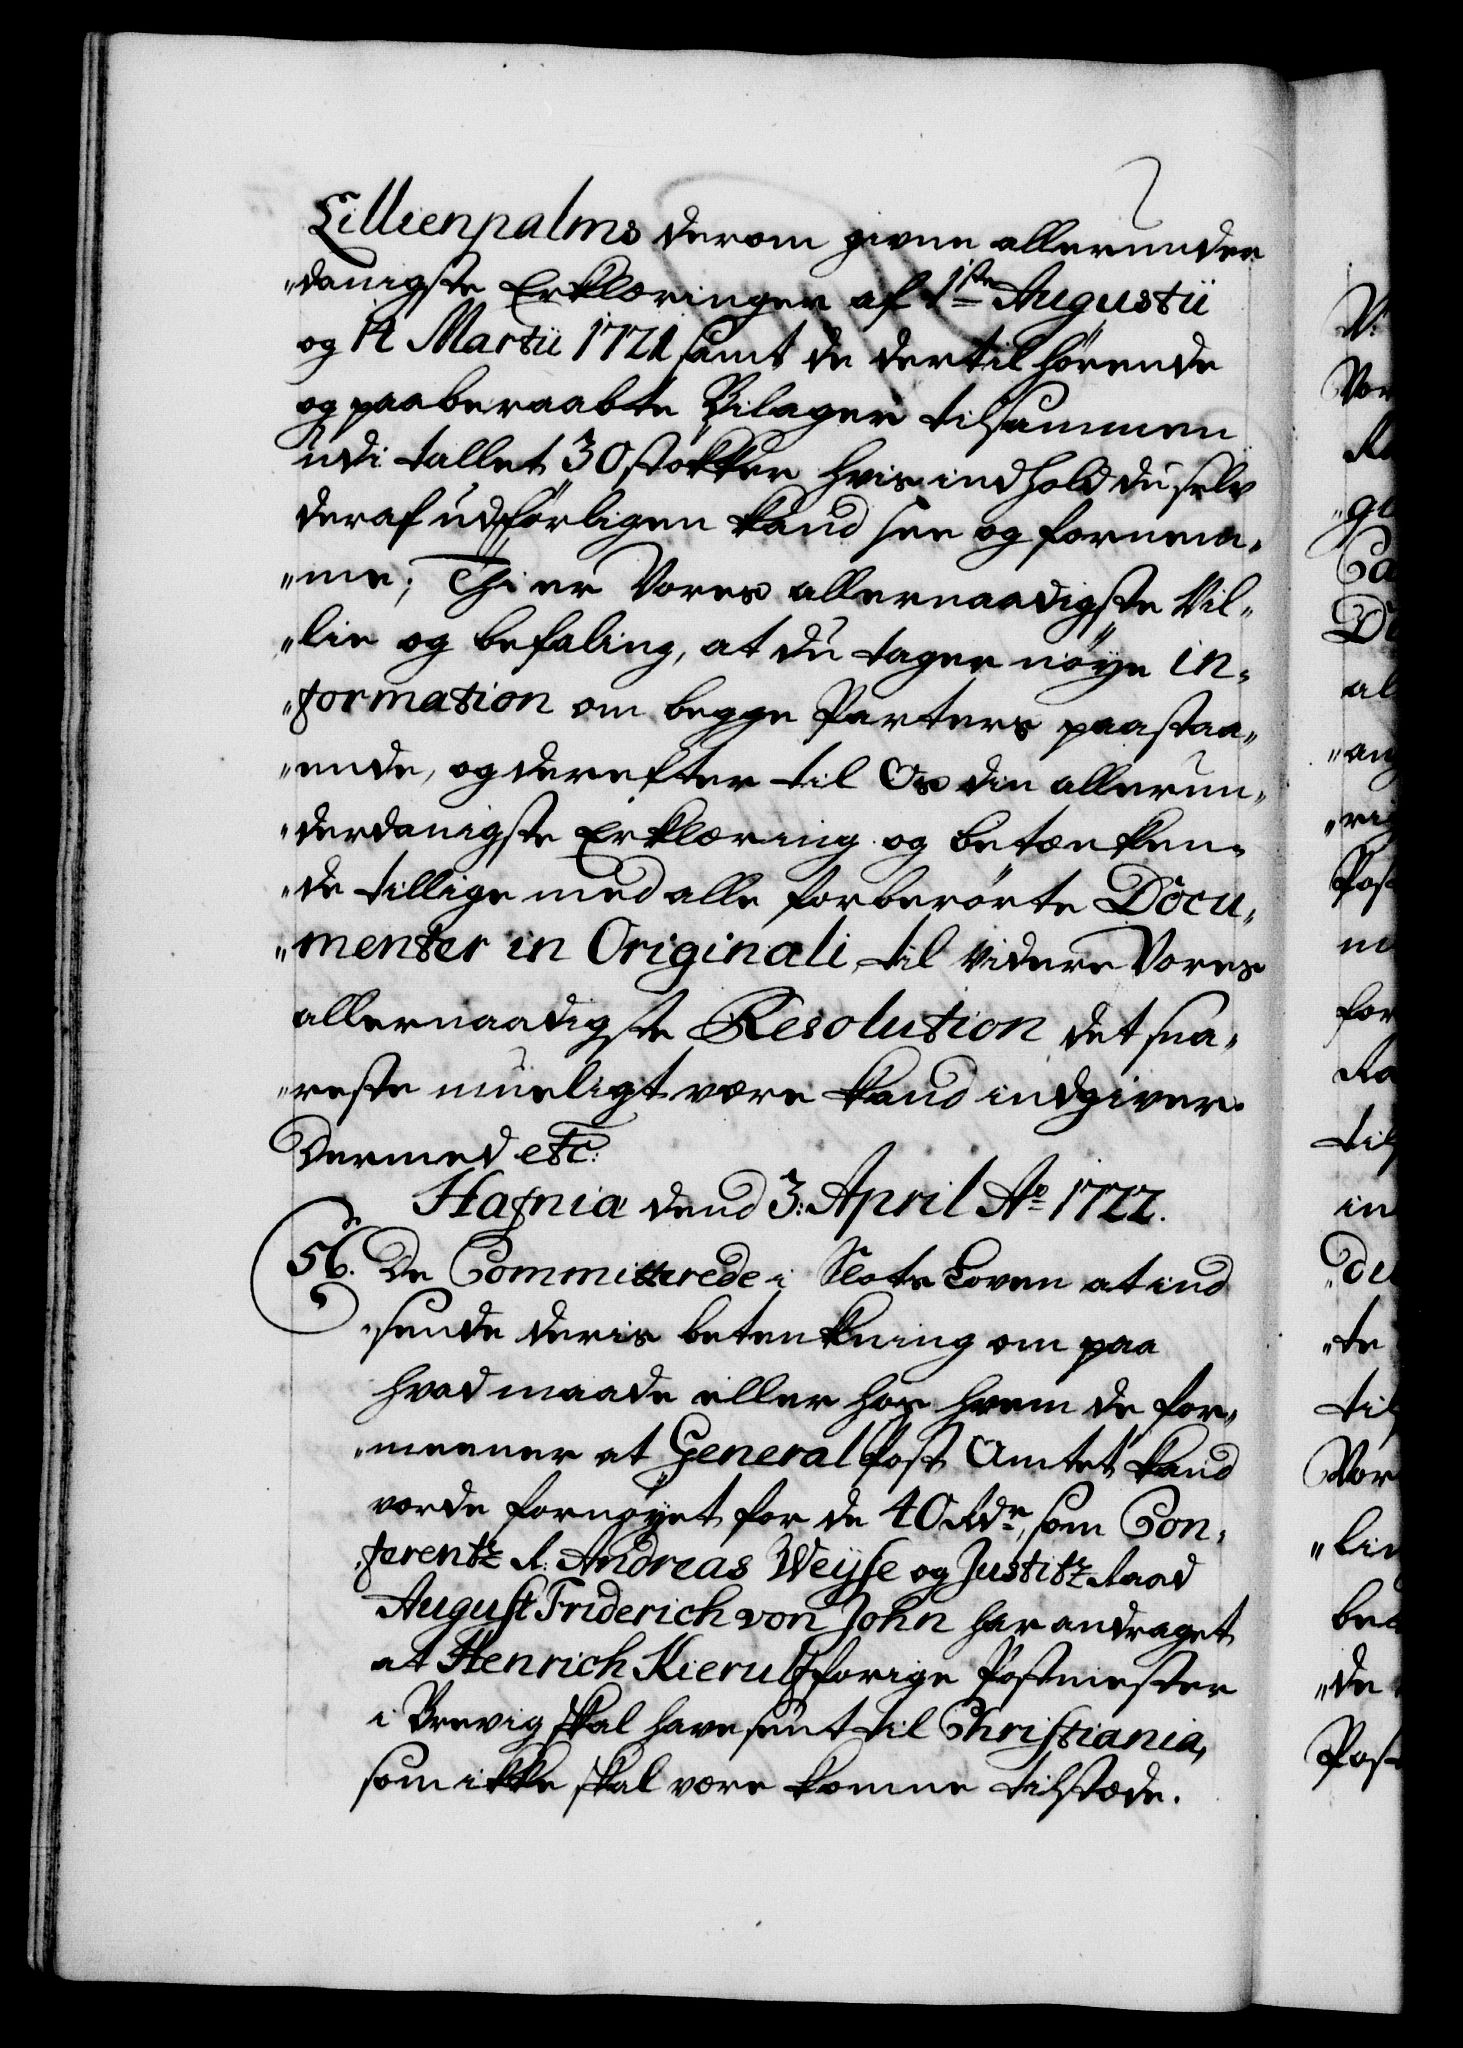 Lillienpalms derom givne allerunder
"danigste Erklæringer af 1ste Augustii
og 14 Martii 1721 samt de dertil hörende
og paaberaabte Bilager tilsammen
udi tallet 30 støkker hvis indhold du selv
deraf udførligen kand see og fornem"
"me; Thi er Vores allernaadigste Vil"
"lie og befaling, at du tager nøye in"
"formation om begge Parters paastaa"
"ende, og derefter til Os din allerun"
"derdanigste Erklæring og betænken"
"de tillige med alle forberørte Docu"
"menter in Originali, til videre Vores
allernaadigste Resolution det sna"
"reste mueligt være kand indgiver.
Dermed etc:
Hafnia dend 3: April Ao 1722.
56. De Committerede i Slots Loven at ind
"sende deris betenkning om paa
hvad maade eller hos hvem de for"
"meener at General Post Amtet kand
vorde fornøyet for de 40 Rdr, som Con"
"ferentz R: Andreas Weyse og Justitz Raad
August Friderich von John har andraget
at Henrich Kierulf forige Postmester
i Brevig skal have sent til Christiania,
som ikke skal være komne tilstæde.